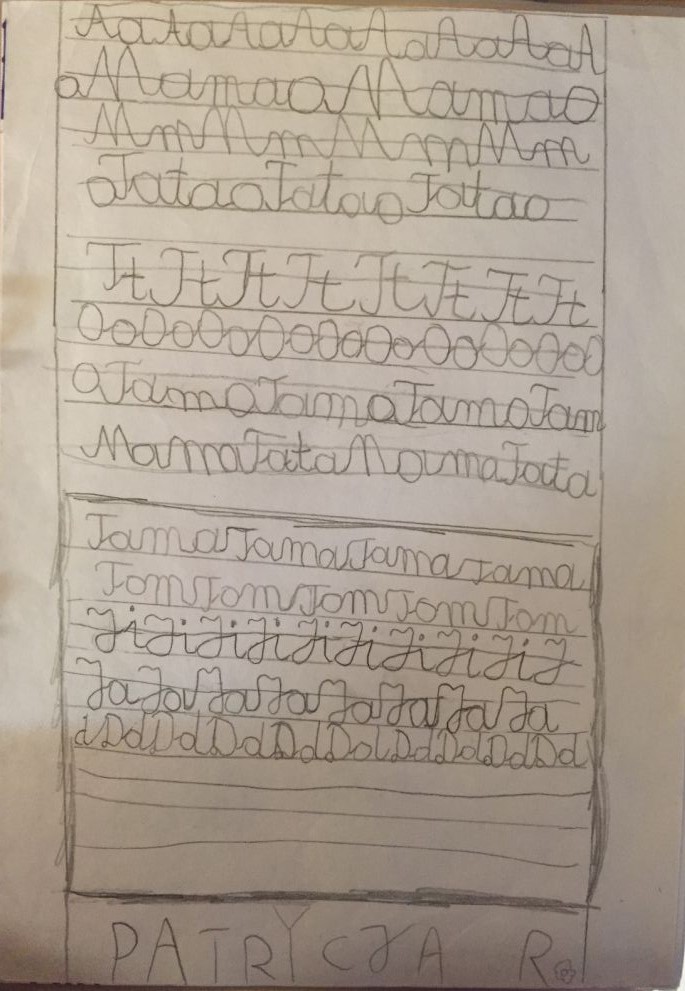 AaAaAaAaAaAaAaA
aMamaoMamao
MmMmMmMm
oTataoTataoTatao
TtTtTtTtTtTtTtTt
OoOoOoOoOoOoOoOoOo
aTamaTamaTamaTam
MamaTataMamaTata
TamaTamaTamaTama
TomTomTomTomTom
JiJiJiJiJiJiJiJiJiJ
JaJaJaJaJaJaJaJa
dDdDdDdDdDdDdDdDdDd
PATRYCJA R